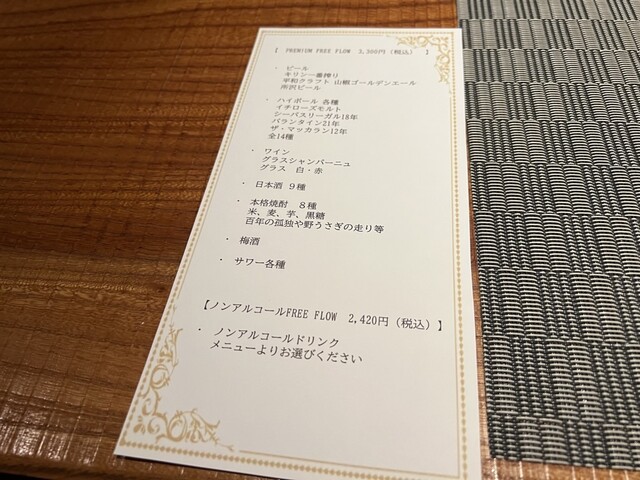 【 PREMIUM FREE FLOW 3,300円(税込) 】
・ ビール
キリン一番搾り
平和クラフト 山椒ゴールデンエール
所沢ビール
・ ハイボール 各種
イチローズモルト
シーバスリーガル18年
バランタイン21年
ザ・マッカラン12年
全14種
・ ワイン
グラスシャンパーニュ
グラス 白・赤
・ 日本酒 9種
・ 本格焼酎 8種
米、麦、芋、黒糖
百年の孤独や野うさぎの走り等
・ 梅酒
・ サワー各種
【ノンアルコールFREE FLOW 2,420円(税込)】
・ ノンアルコールドリンク
メニューよりお選びください